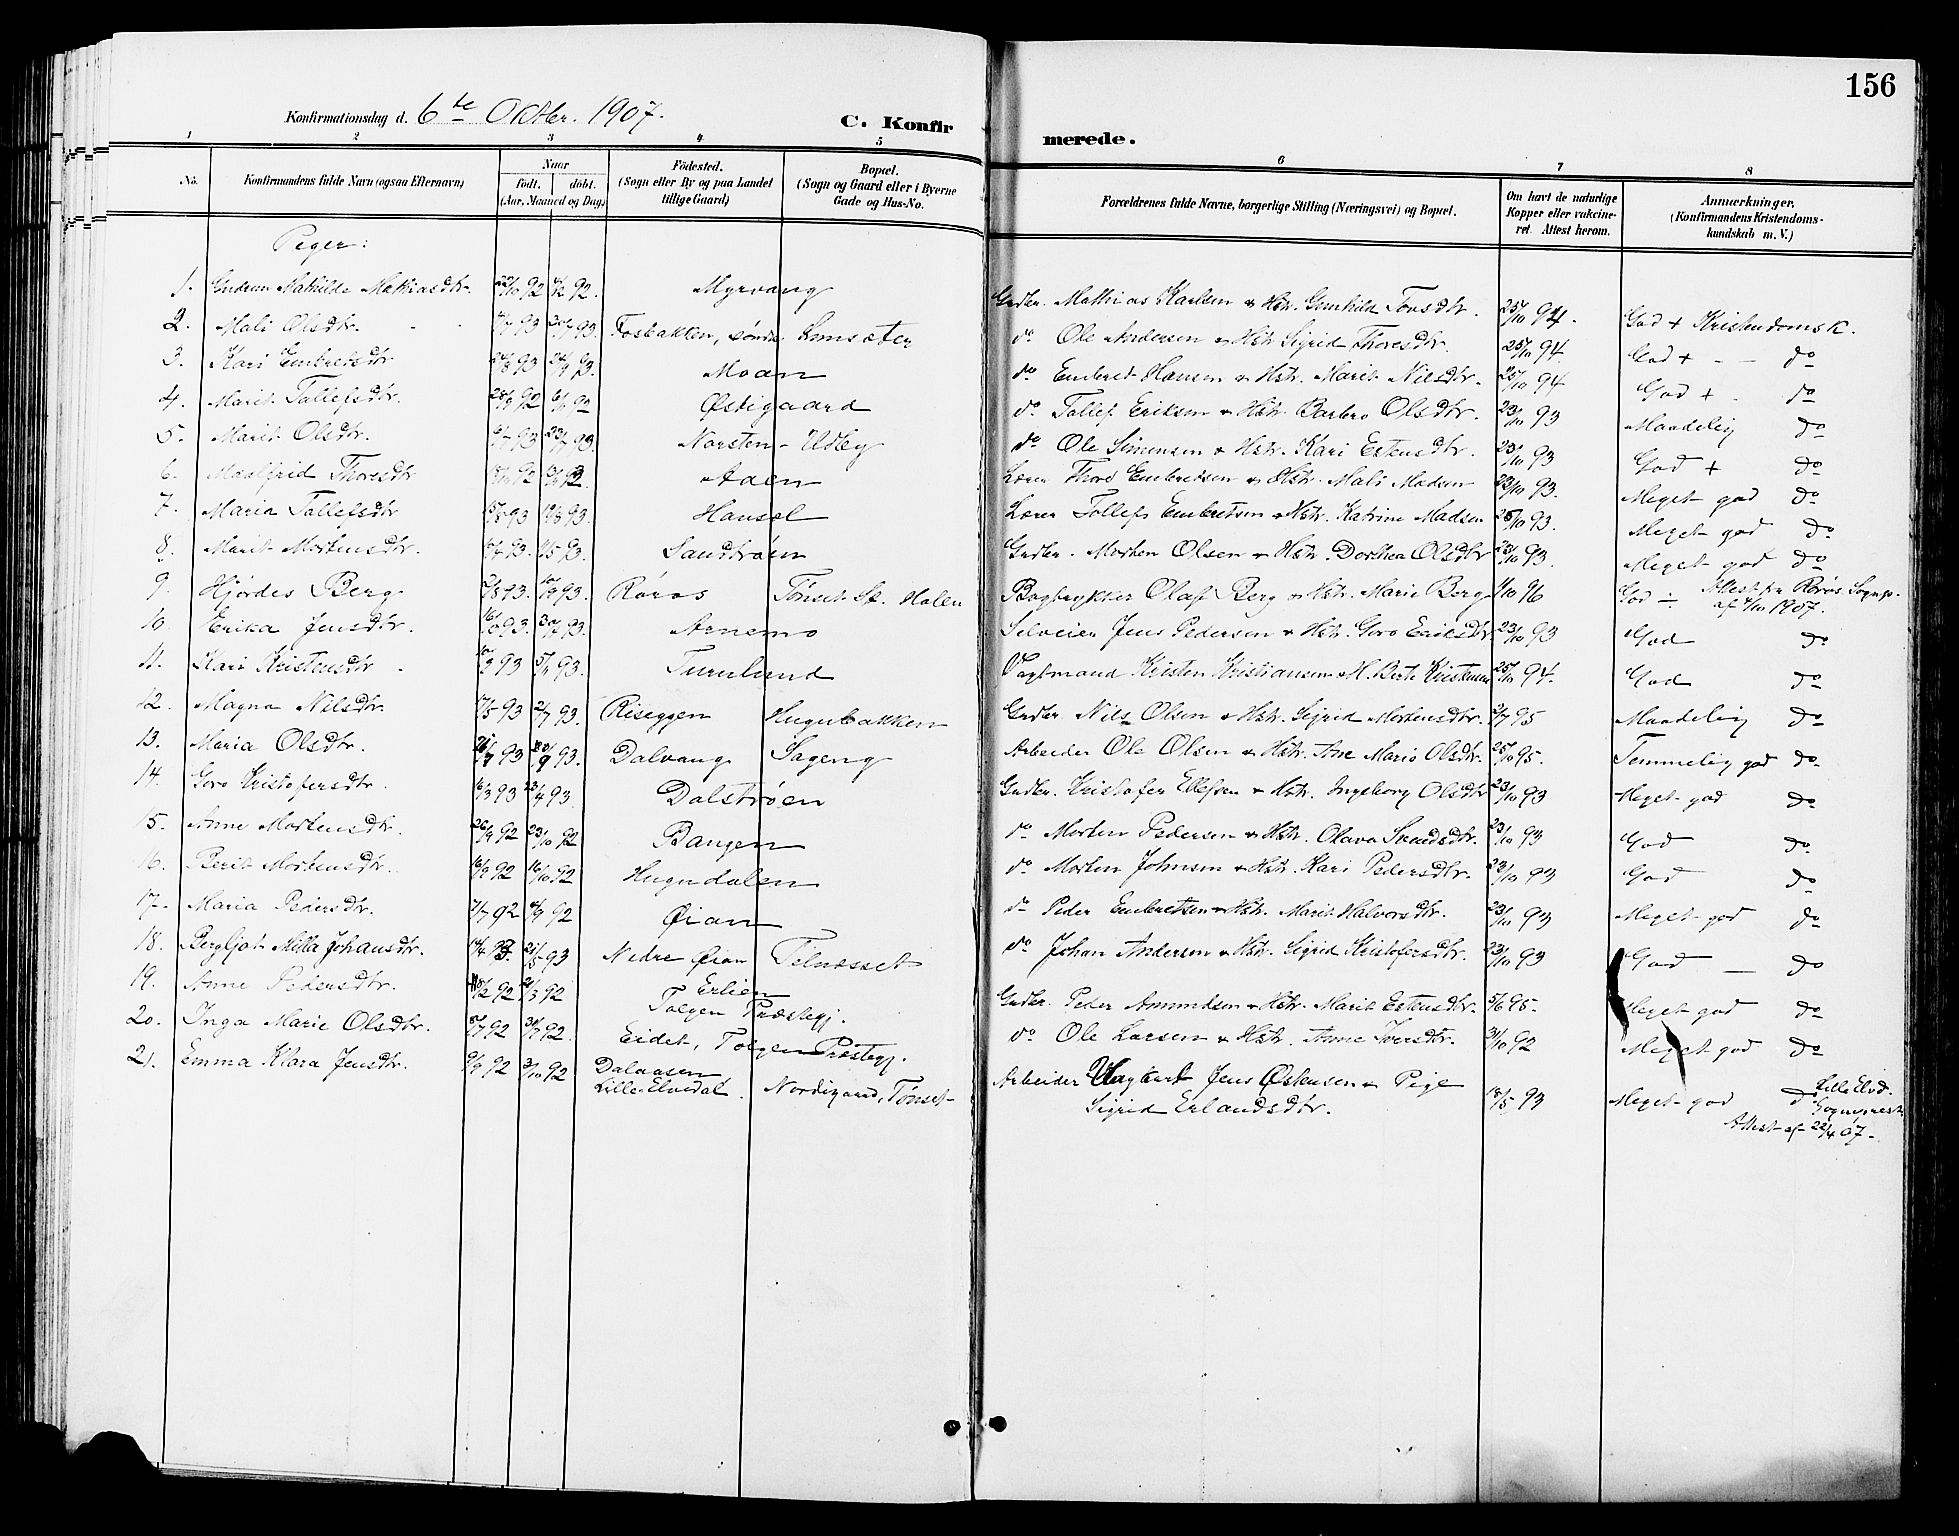 156
Konfirmationsdag d. 6te Oktbr. 1907.
C. Konfirmerede.
1 2 3 4 5 6 7 8
No.
Konfirmandens fulde Navn (ogsaa Efternavn)
Naar
født. døbt.
(Aar, Maaned og Dag)
Födested.
(Sogn eller By og paa Landet
tillige Gaard)
Bopæl.
(Sogn og Gaard eller i Byerne
Gade og Hus-No.
Forældrenes fulde Navne, borgerlige Stilling (Næringsvei) og Bopæl.
Om havt de naturlige
Kopper eller vakcine-
ret. Attest herom.
Anmærkninger.
(Konfirmandens Kristendoms-
kundskab m. V.)
Piger:
1. Gudrun Mathilde Mathiasdtr. 92 92. Myrvang Grdbr. Mathias Karlsen & Hstr. Gunhild Tonsdtr. 25/10 94. God + Kristendomsk.
2. Mali Olsdtr. 93 93. Fosbakken, søndr. Lomsæter do Ole Andersen & Hstr. Sigrid Thoresdtr. 25/10 94 God + do
3. Kari Embretsdtr 93 24/9 93. Moan do Embret Hansen & Hstr. Marit Nilsdtr. 25/10 94 God + do
4. Marit Tollefsdtr. 92 92 Østigaard do Tollef Eriksen & Hstr. Barbro Olsdtr. 23/10 93 Maadelig do
5. Marit Olsdtr. 93 23/7 93. Norsten-Udby do Ole Simensen & Hstr. Kari Estensdtr. 23/10 93 God + do
6. Maalfrid Thoresdtr 92 92. Aaen Lærer Thore Embredsen & Hstr. Mali Madsen 23/10 93. Meget god do
7. Maria Tollefsdtr 93 93. Hansæl Lærer Tollef Embretsen & Hstr. Katrine Madsen 93. Meget god do
8. Marit Mortensdtr. 93. 93. Sandtrøen Grdbr. Morten Olsen & Hstr. Dorthea Olsdtr 23/10 93. Meget god do
9. Hjördes Berg 93. 93. Røros Tönset St. Holen Bogtrykker Olaf Berg & Hstr. Marie Berg 96 God ÷ Attest fra Röros Sognep. af 1907.
10. Erika Jensdtr. 93. 93. Arnemo Selveier Jens Pedersen & Hstr. Goro Eriksdtr 23/10 93 God do
11. Kari Kristensdtr 93 93. Tuvulund Vagtmand Kristen Kristiansen & H. Berte Kristensen 25/10 94. God do
12. Magna Nilsdtr. 17/5 93 2/7 93. Riseggen Hugubakken Grdbr. Nils Olsen & Hstr. Sigrid Mortensdtr. 2/7 95 Maadelig do
13. Maria Olsdtr. 93 93. Dalvang Sageng Arbeider Ole Olsen & Hstr. Ane Marie Olsdtr. 25/10 95. Temmelig god do
14. Goro Kristofersdtr. 6/3 93 23/4 93. Dalstrøen Grdbr. Kristofer Ellefsen & Hstr. Ingeborg Olsdtr 23/10 93 Meget god do
15. Anne Mortensdtr. 26/9 92 23/10 92 Bangen do Morten Pedersen & Hstr. Olava Svendsdtr. 23/10 93 God do
16. Berit Mortensdtr. 16/9 92 16/10 92 Hugudalen do Morten Johnsen & Hstr. Kari Pedersdtr. 23/10 93 God do
17. Maria Pedersdtr. 7/7 92 4/9 92 Øian do Peder Embretsen & Hstr. Marit Halvorsdtr. 23/10 93 Meget god do
18. Bergljot Milla Johansdtr. 14/4 93. 21/5 93 Nedre Øian Telnesset do Johan Andersen & Hstr. Sigrid Kristofersdtr. 23/10 93 God — do
19. Anne Pedersdtr. 92 92 Erlien Tolgen Præstegj. Grdbr. Peder Amundsen & Hstr. Marit Estensdtr. 5/6 95. Meget god do
20. Inga Marie Olsdtr. 92 31/7 92. Eidet, Tolgen Præstegj. do Ole Larsen & Hstr. Anne Iversdtr. 31/10 92 Meget god do
21. Emma Klara Jensdtr. 9/9 92 3/10 92 Dalaasen Lille-Elvedal. Nordigaard, Tönset Arbeider Ungkarl Jens Østensen & Pige
Sigrid Erlandsdtr. 18/5 93 Meget god do Lille Elvd. Sognepræst
Attest af 22/4 07.